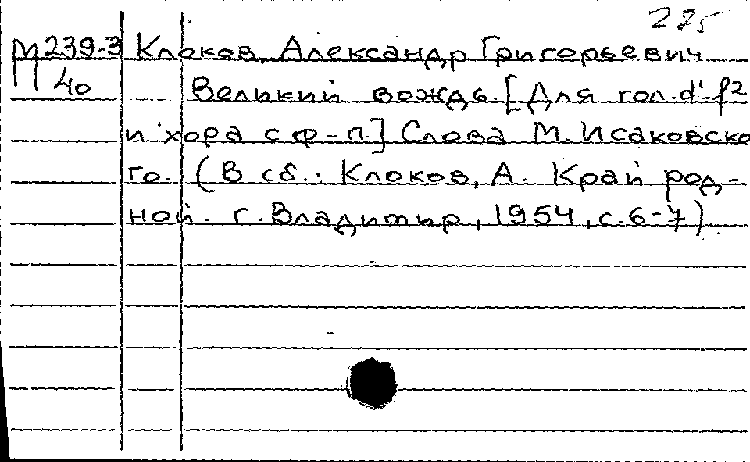 285
М239-3 Клоков, Александр Григорьевич
40 Великий вождь. [Для гол. d'-f²
и хора с ф-п.] Слова М. Исаковско
го. (В сб.: Клоков, А. Край род-
ной. г. Владимир, 1954, с. 6-7)